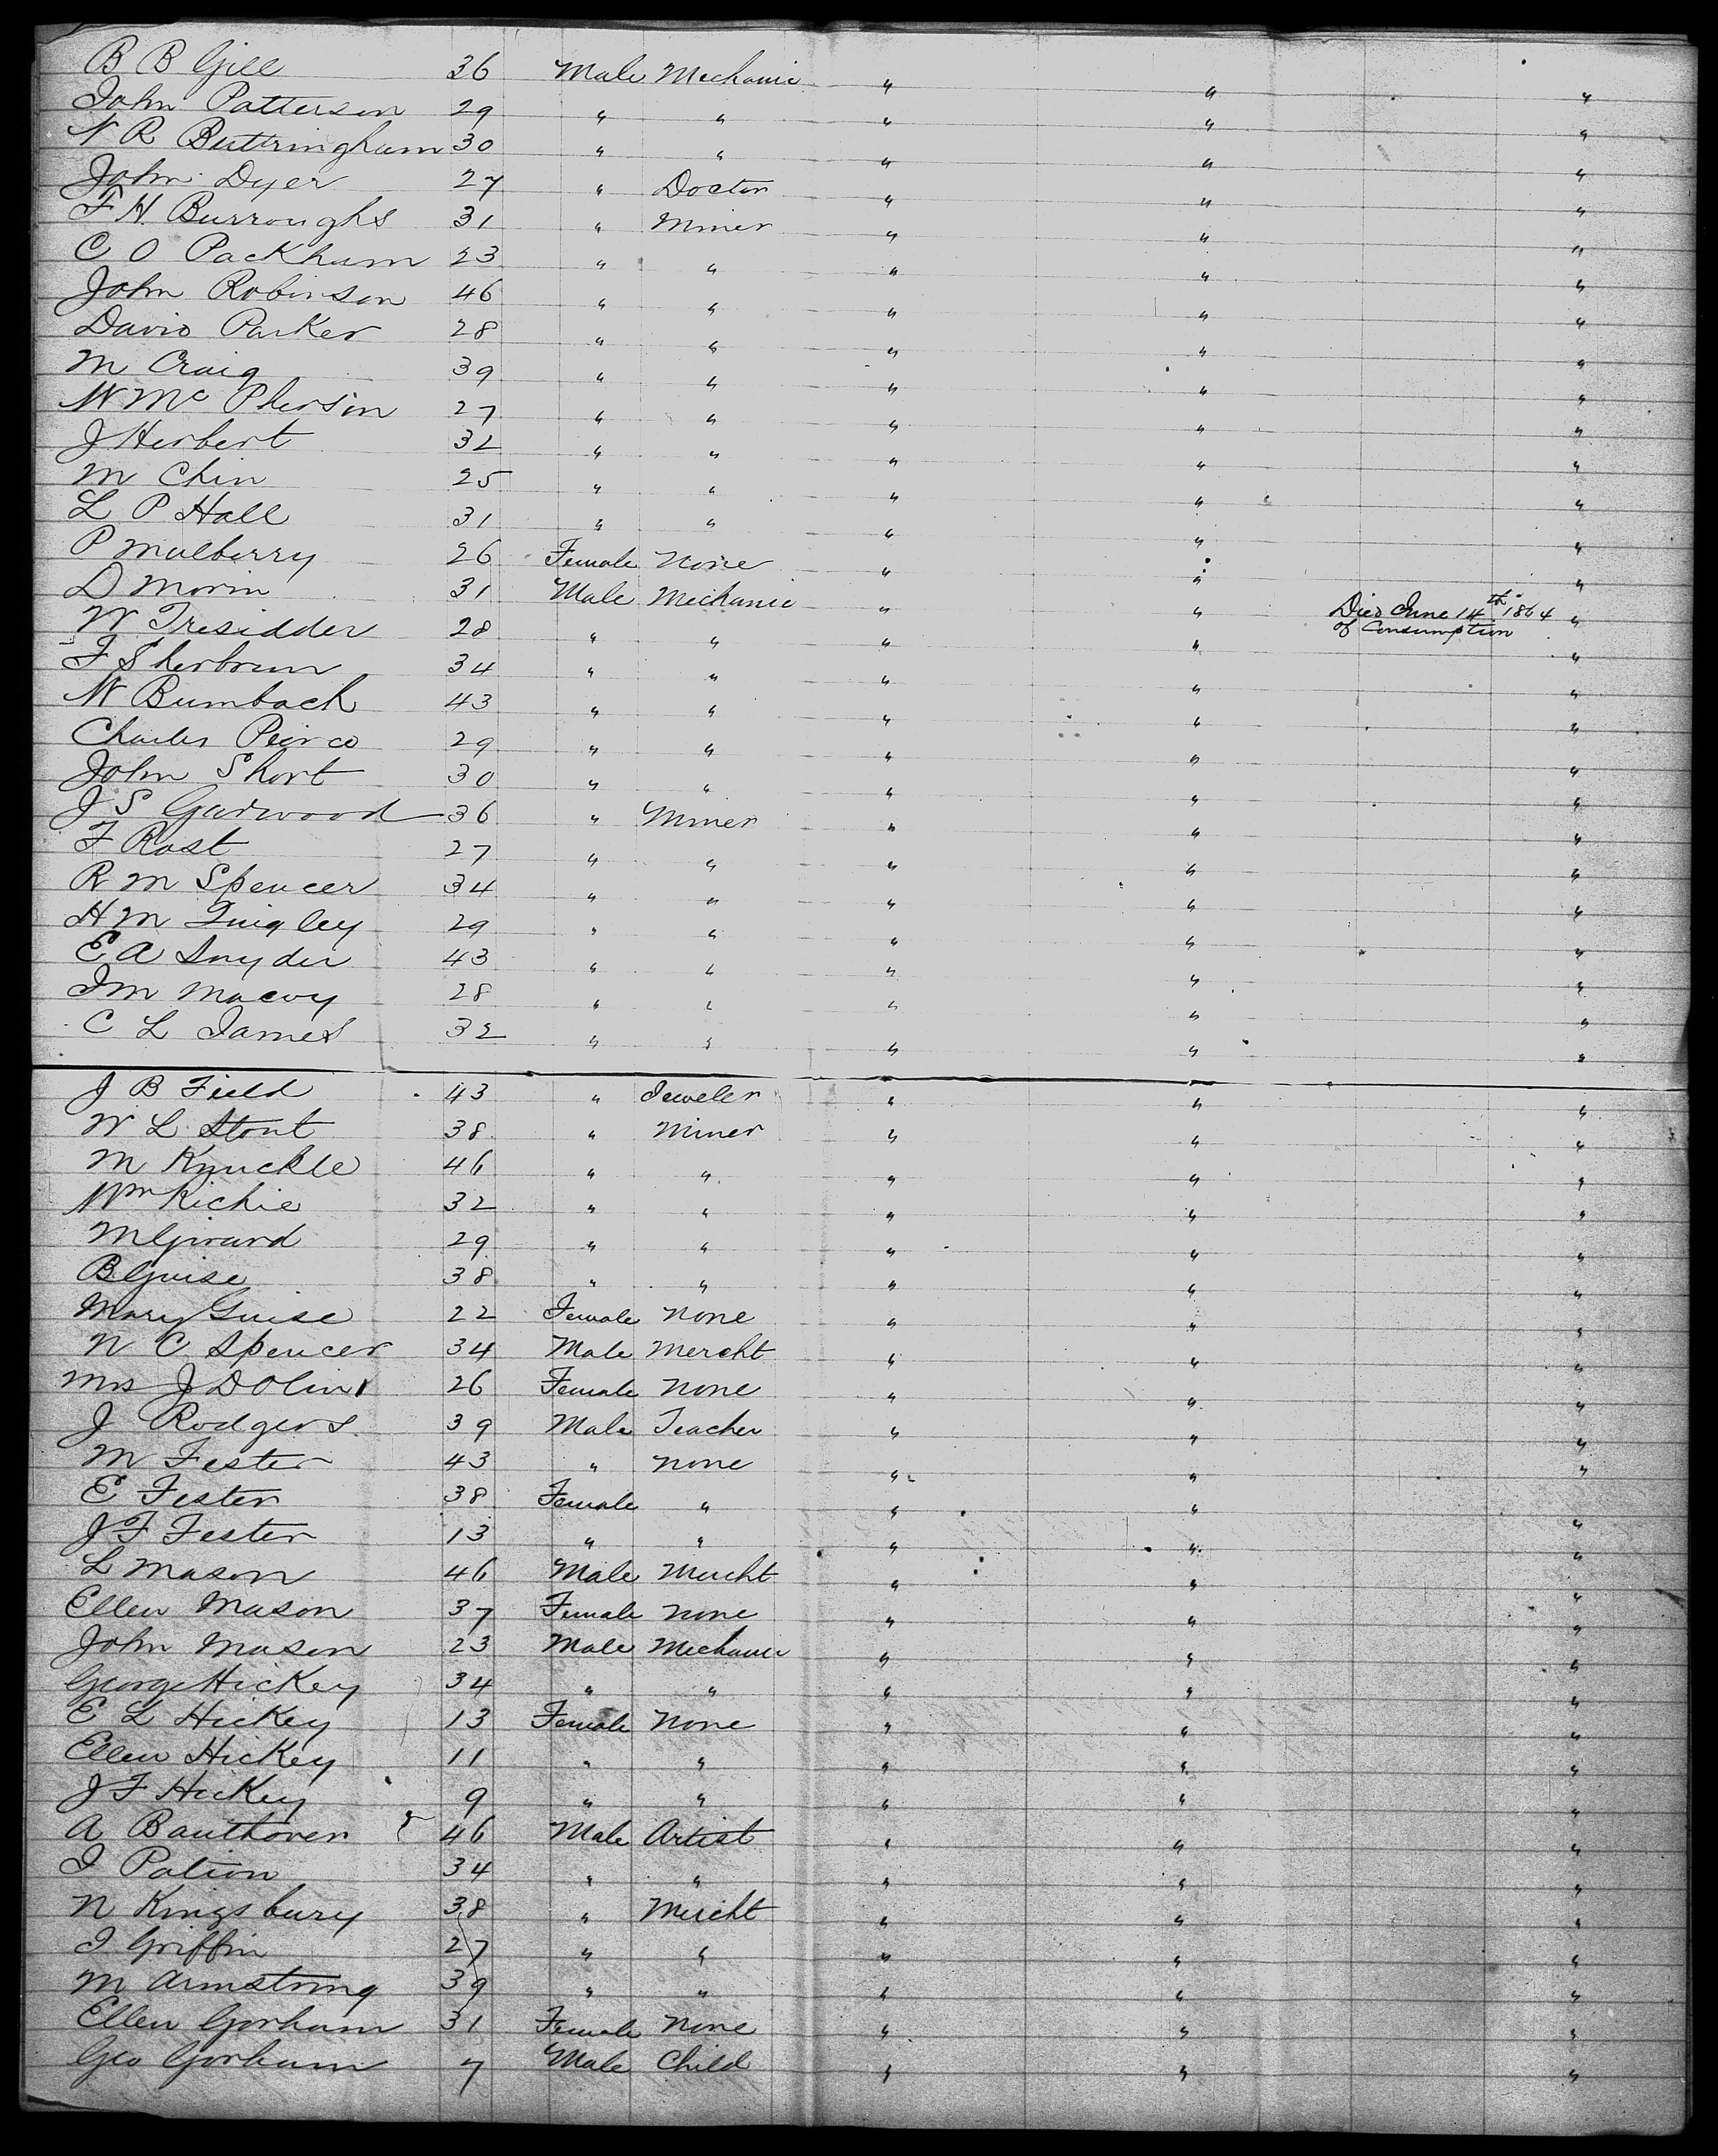 B B Gill 36 Male Mechanic " " "
John Patterson 29 " " " " "
N R Buttringham 30 " " " " "
John Dyer 27 " Doctor " " "
F H. Burroughs 31 " Miner " " "
C O Packham 23 " " " " "
John Robinson 46 " " " " "
David Parker 28 " " " " "
M Craig 39 " " " " "
W Mc Pherson 27 " " " " "
J Herbert 32 " " " " "
M Chin 25 " " " " "
L P Hall 31 " " " " "
P Mulberry 26 Female None " " "
D Morin 31 Male Mechanic " " Died June 14th 1864 of Consumption "
W Tresidder 28 " " " " "
F Sherbrun 34 " " " " "
W Bumbach 43 " " " " "
Charles Peirce 29 " " " " "
John Short 30 " " " " "
J S Garwood 36 " Miner " " "
F Rost 27 " " " " "
R M Spencer 34 " " " " "
H M Quigley 29 " " " " "
E A Snyder 43 " " " " "
J M Macvy 28 " " " " "
C L James 32 " " " " "
J B Field 43 " Jeweler " " "
W L Stout 38 " Miner " " "
M Knuckle 46 " " " " "
Wm Richie 32 " " " " "
M Girard 29 " " " " "
B Guise 38 " " " " "
Mary Guise 22 Female None " " "
N C Spencer 34 Male Mercht " " "
Mrs J D Olin 26 Female None " " "
J Rodgers 39 Male Teacher " " "
M Fester 43 " None " " "
E Fester 38 Female " " " "
J F Fester 13 " " " " "
L Mason 46 Male Mercht " " "
Ellen Mason 37 Female None " " "
John Mason 23 Male Mechanic " " "
George Hickey 34 " " " " "
E L Hickey 13 Female None " " "
Ellen Hickey 11 " " " " "
J F Hickey 9 " " " " "
A Bauthover 46 Male Artist " " "
J Pation 34 " " " " "
N Kingsbury 38 " Mercht " " "
J Griffin 27 " " " " "
M Armstrong 39 " " " " "
Ellen Gorham 31 Female None " " "
Geo Gorham 7 Male Child " " "